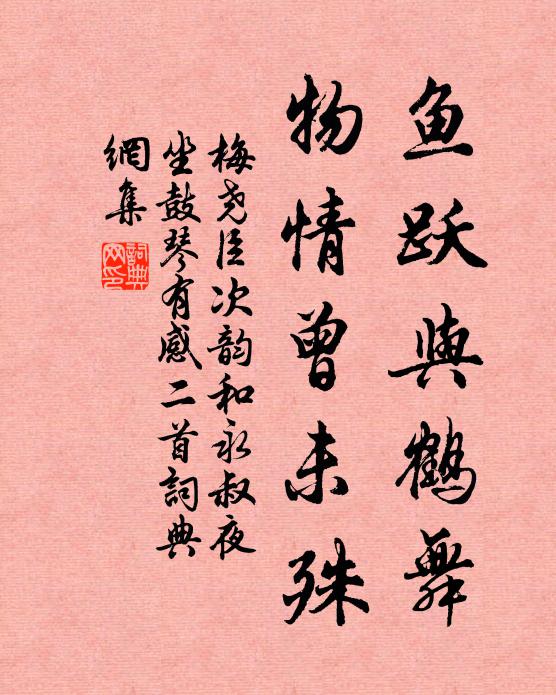 鱼跃與鶴舞
物情曾未殊
梅尧臣次韵和永叔夜
坐鼓琴有感二首詞典
網集
詞典
网印